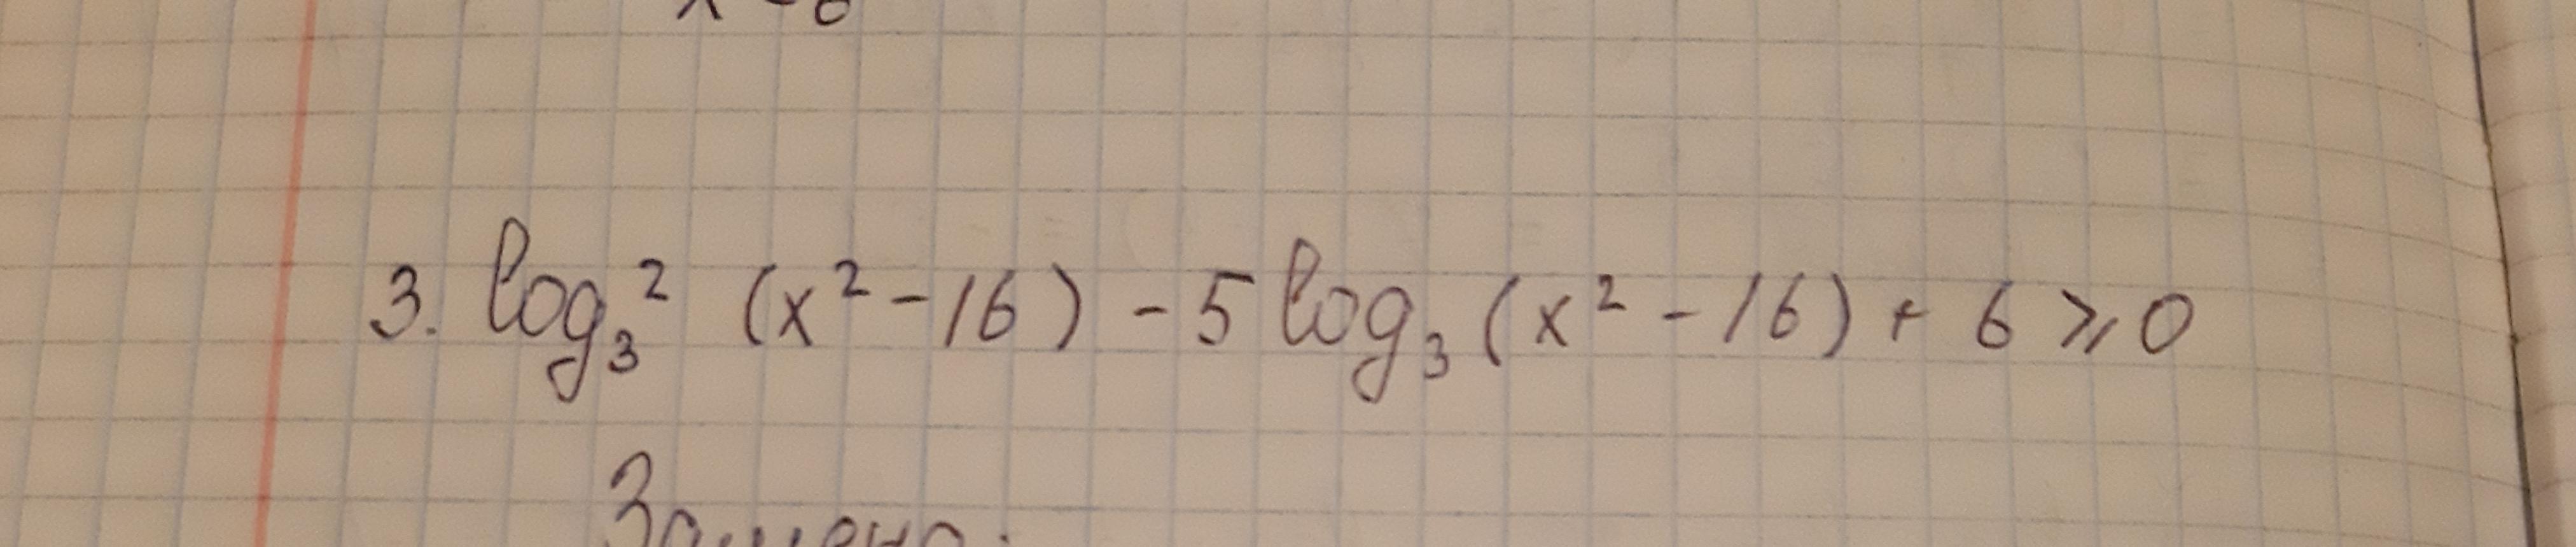 x - 6
3. log₃² (x² - 16) - 5 log₃ (x² - 16) + 6 ⩾ 0
Замена: